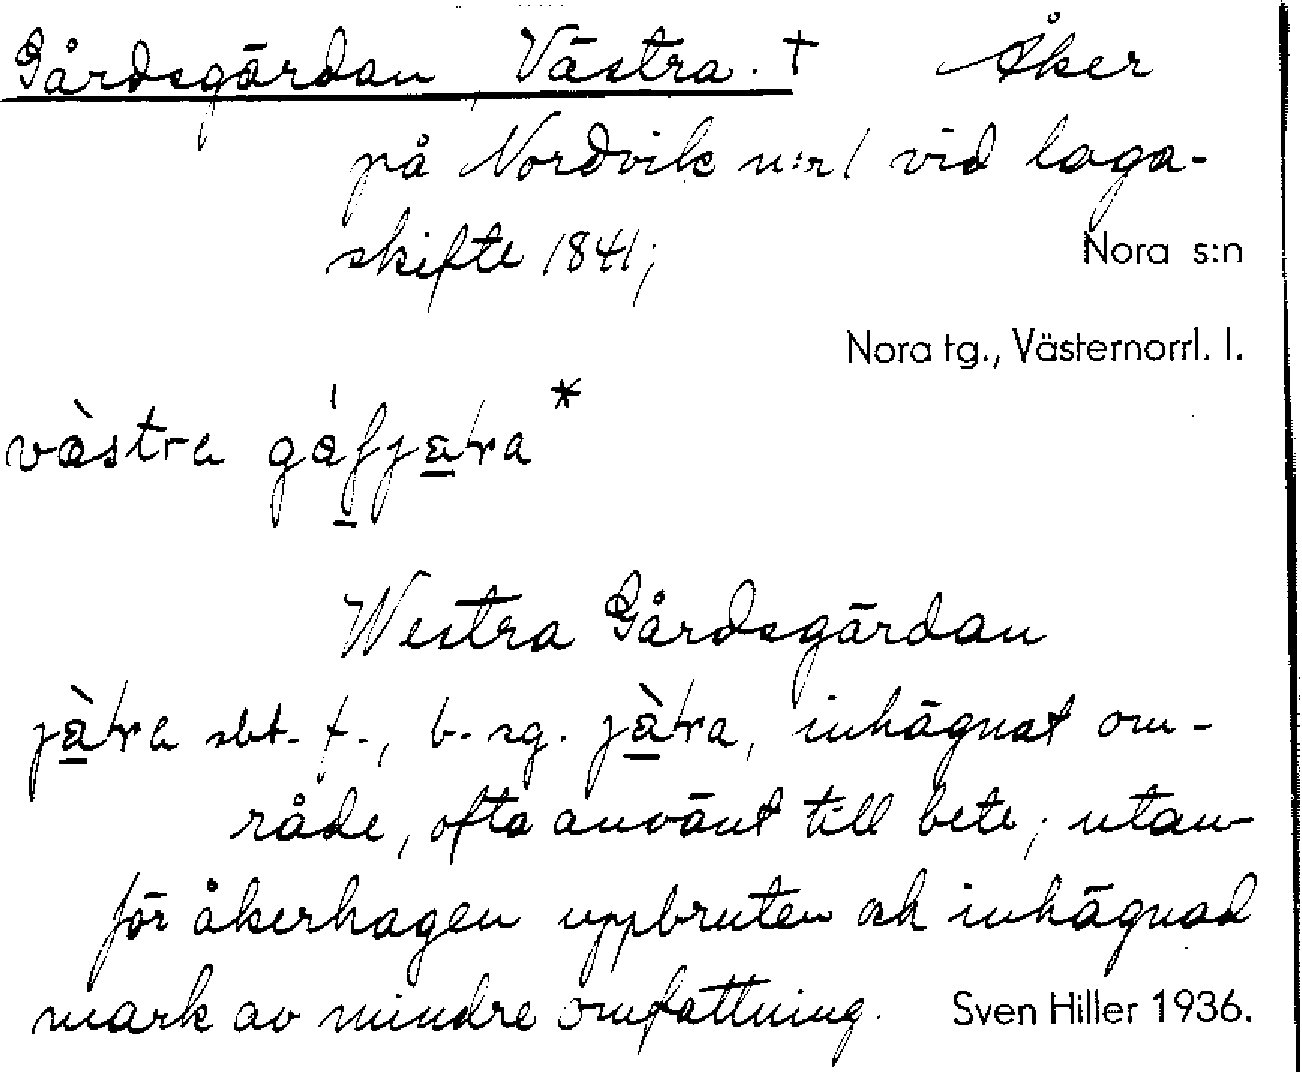 Gårdsgärdan, Västra. † Åker
på Nordvik n:r 1 vid laga-
skifte 1841;
Nora s:n
Nora tg., Västernorrl. l.
västra
Westra Gårdsgärdan
sbt. f., b. sg. inhägnat om-
råde, ofta använt till bete; utan-
för åkerhagen uppbruten och inhägnad
mark av mindre omfattning. Sven Hiller 1936.